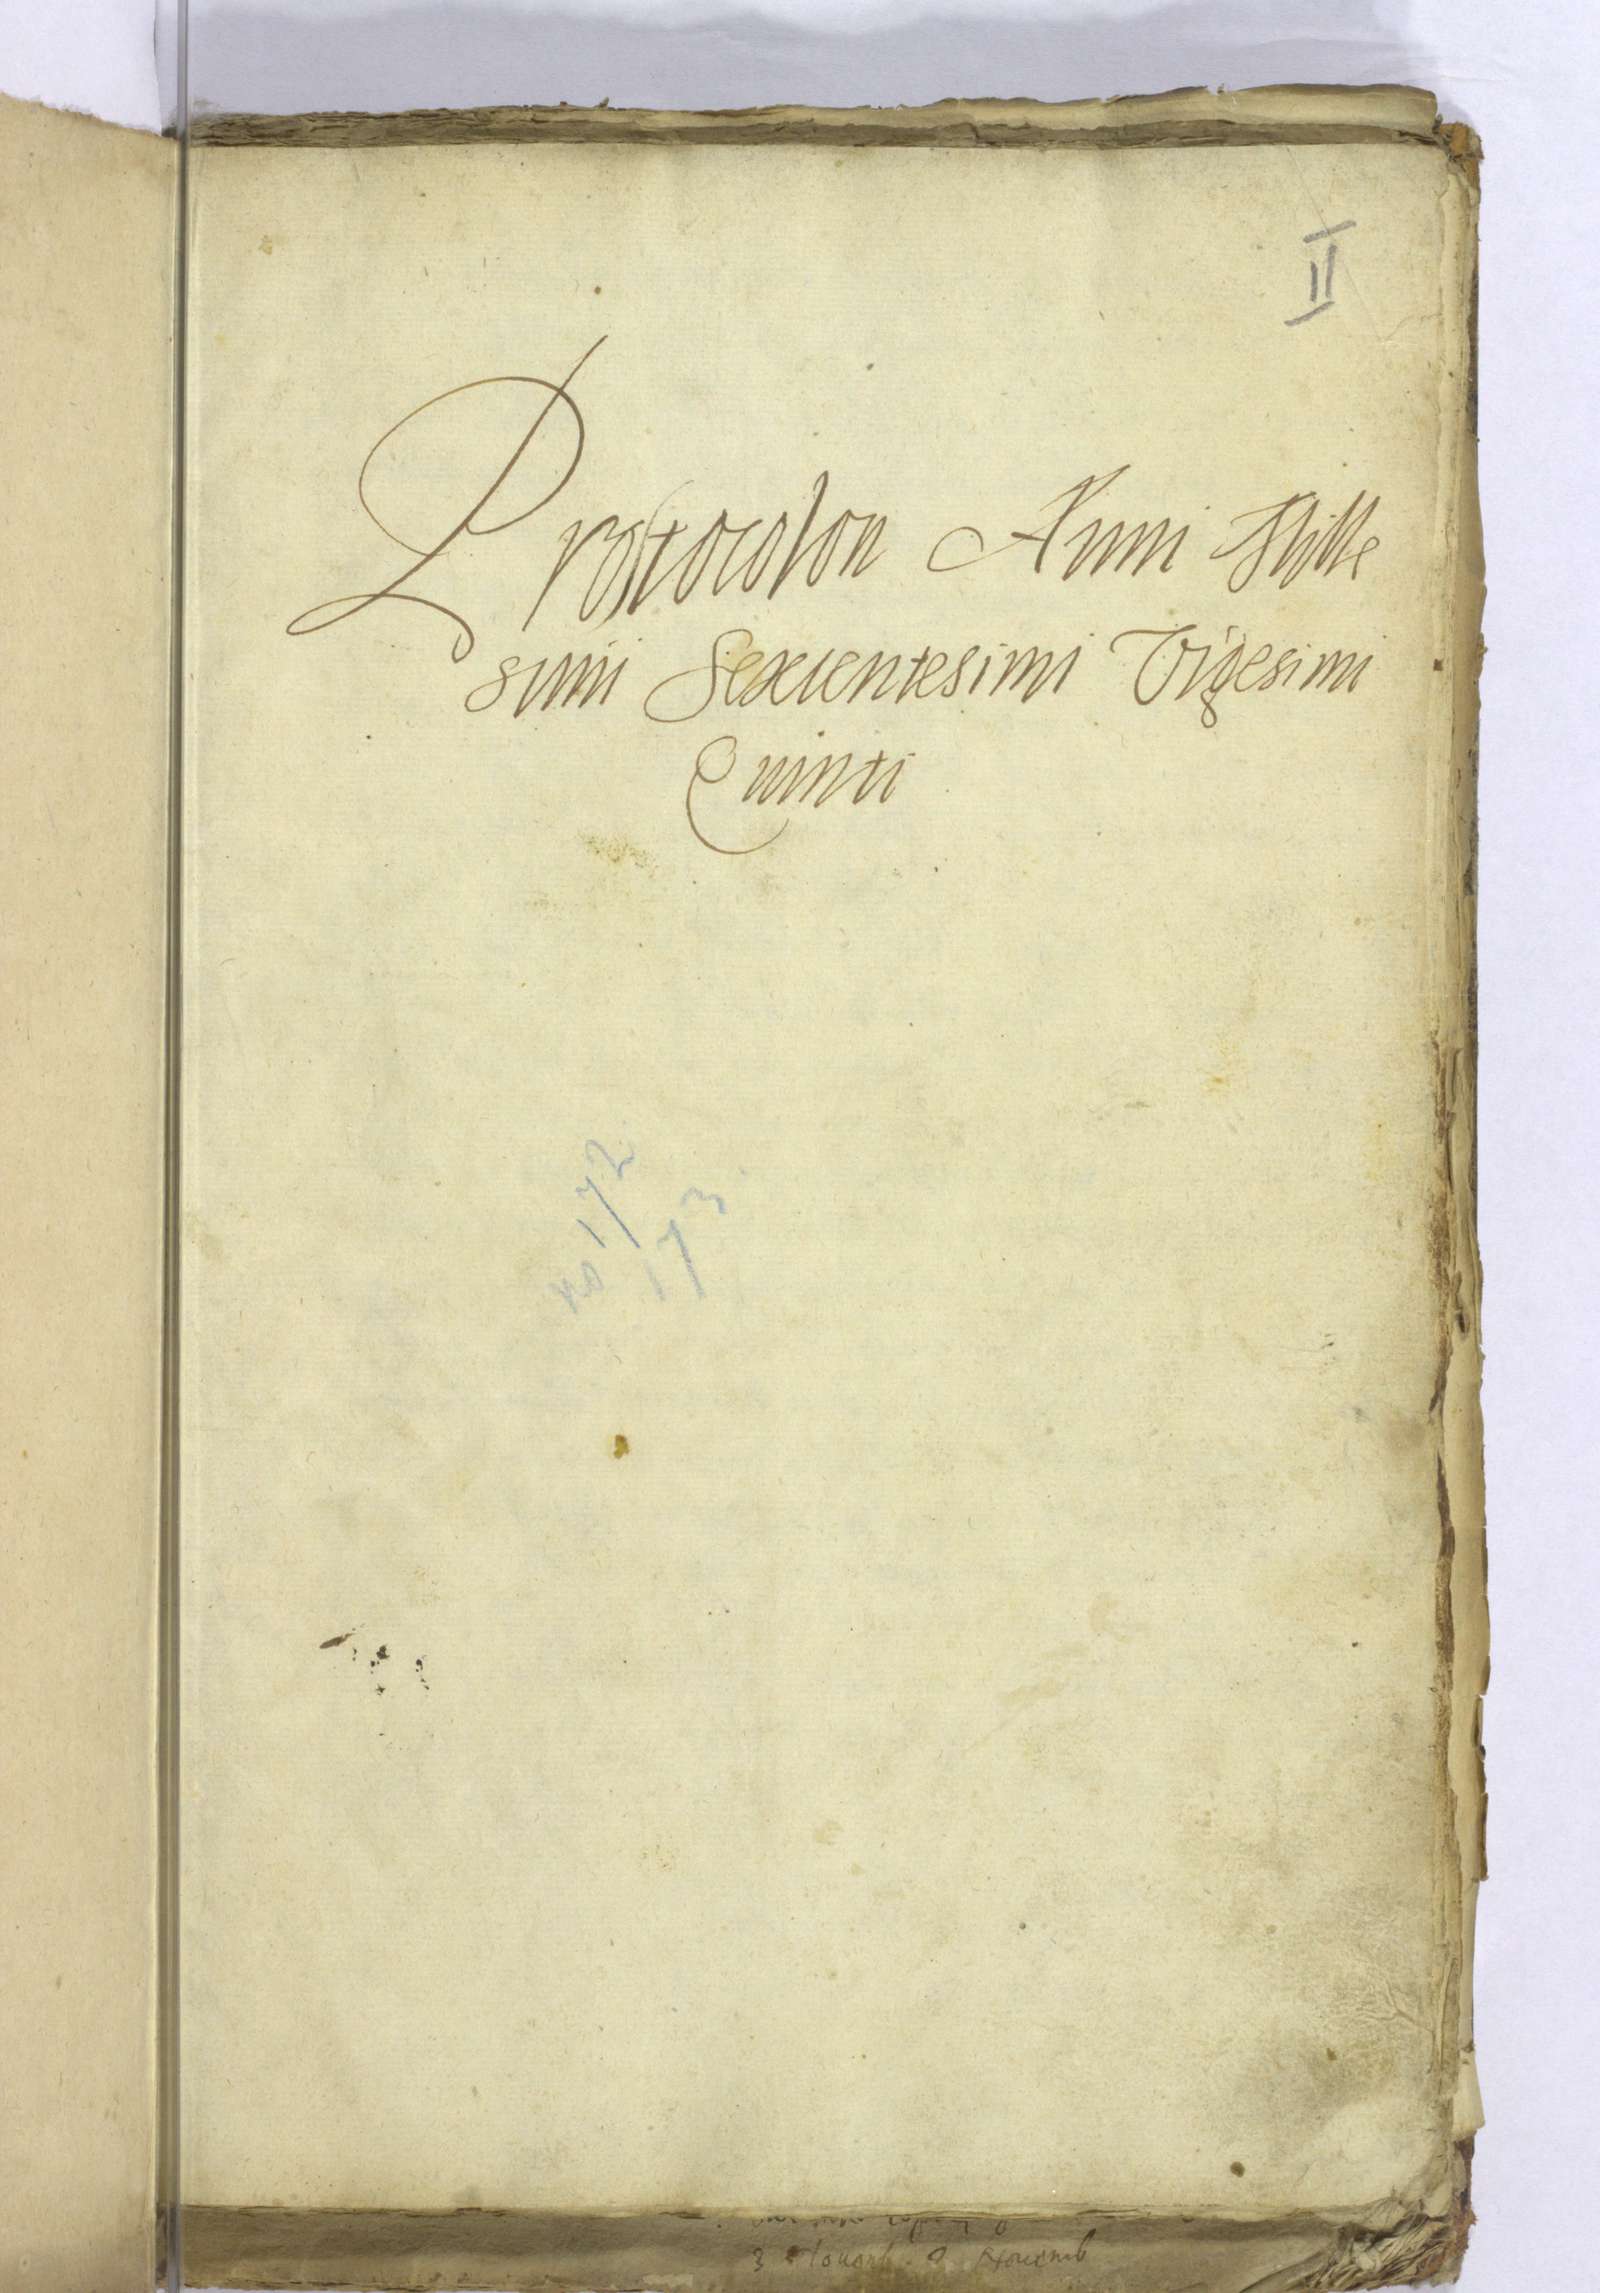 II
Prottocolon Anni Mille
simi Sexcentesimi Vigesimi
Quinti
no 172
173